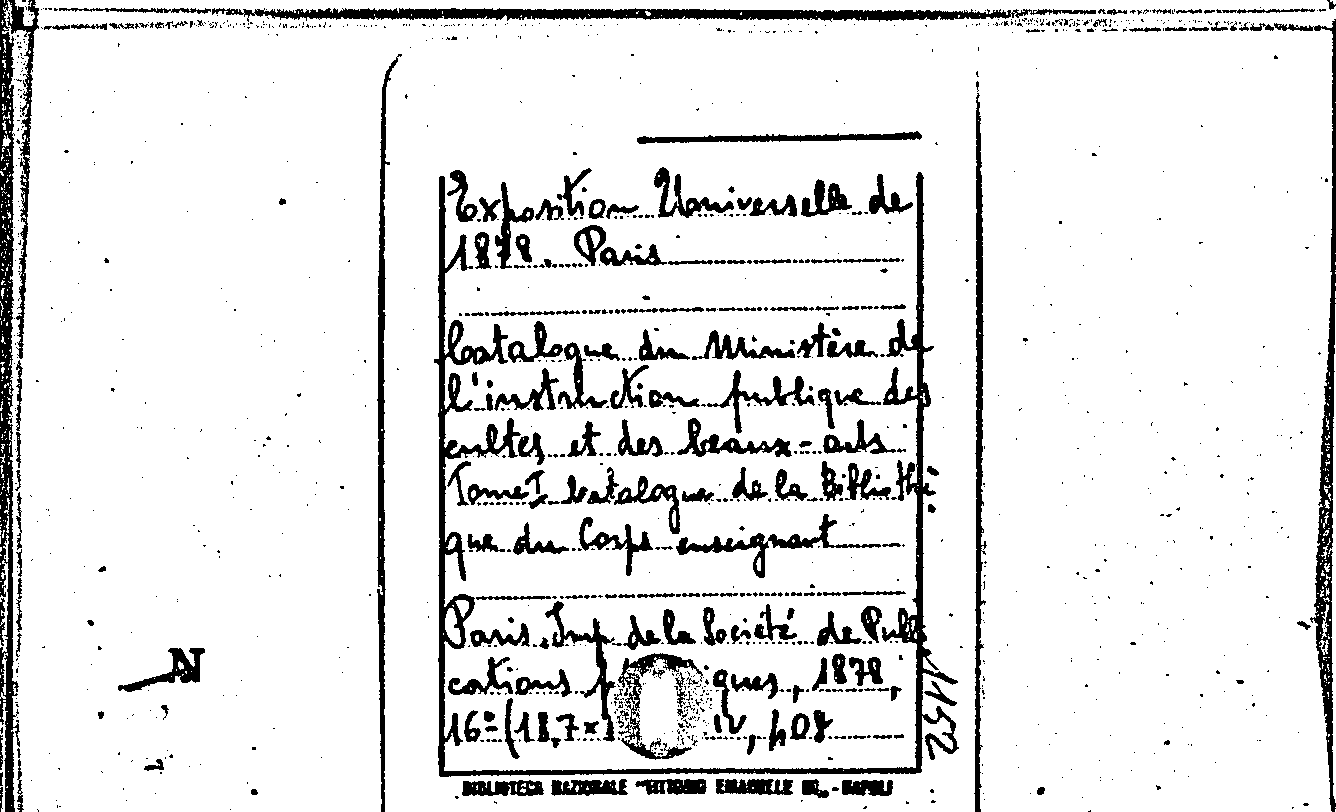 Exposition Universelle de
1878. Paris
Catalogue du Ministère de
l'instruction publique des
cultes et des beaux-arts
Tome I Catalogue de la Bibliothè
que du Corps enseignant
Paris. Imp de la Société de Publi
cations ques, 1878,
16º (18,7× IV, 408
1152
N
BIBLIOTECA NAZIONALE "VITTORIO EMANUELE III" - NAPOLI